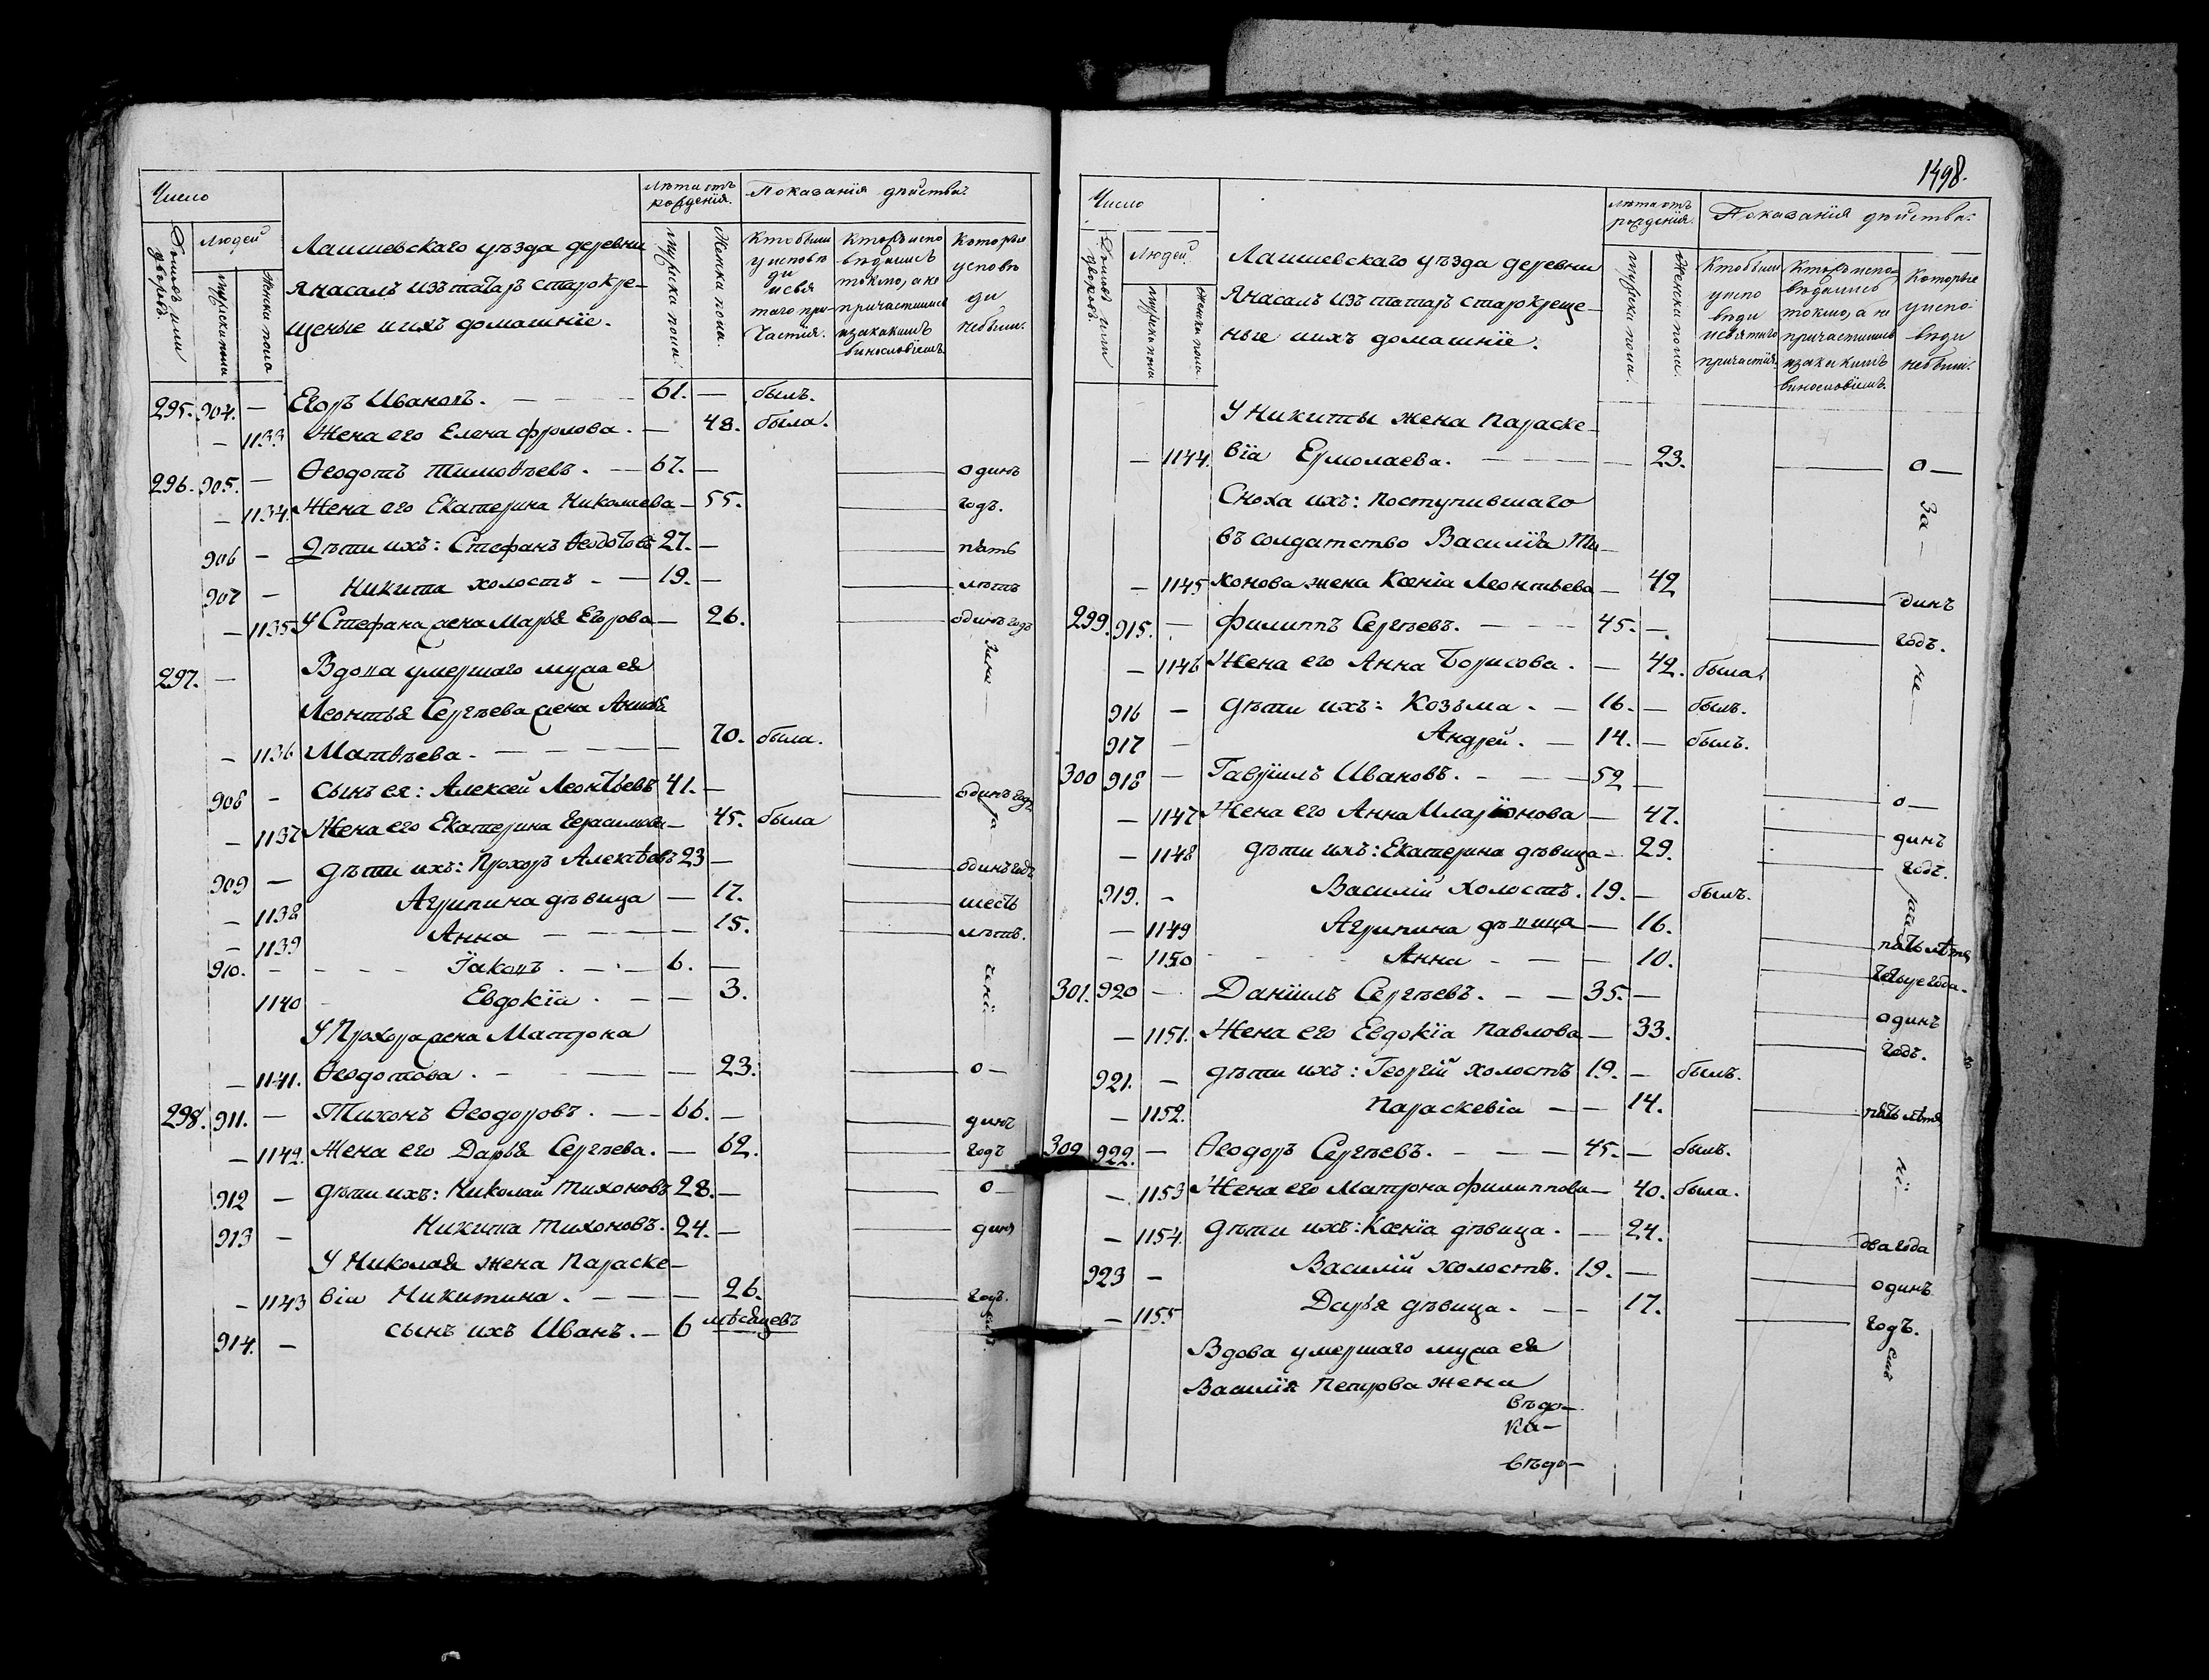 Число
Людей
Лаишевскаго уѣзда деревни
Янасалъ изъ татаръ старокре-
щеные и ихъ домашнїе.
Лѣта отъ
рожденїя.
Показанїя дѣйства:
Домовъ или
дворовъ.
мужеска пола
женска пола
мужеска пола.
женска пола.
Кто были
у исповѣ
ди
и свя
таго при-
частїя.
Кто исповѣдались
токмо, а не
причастились
и за какимъ
винословїемъ.
Которые
у исповѣ
ди
не были.
295. 904. — Егоръ Ивановъ. — 61. — былъ.
— 1133 Жена его Елена Фролова. — 48. была.
296. 905. — Ѳеодотъ Тимоѳѣевъ. — 67. — одинъ
— 1134. Жена его Екатерина Николаева — 55. годъ.
906 — Дѣти ихъ: Стефанъ Ѳеодотовъ 27. — пять
907 — Никита холостъ — 19. — лѣтъ
— 1135 У Стефана жена Марья Егорова — 26. одинъ годъ
297. — Вдова умершаго мужа ея
Леонтья Сергѣева жена Анна
— 1136 Матѳѣева. — 70. была.
908 — сынъ ея: Алексей Леонтьевъ 41. — одинъ годъ
— 1137 Жена его Екатерина Герасимова — 45. была
909 — дѣти ихъ: Прохоръ Алексѣевъ 23 — одинъ годъ
— 1138 Агрипина дѣвица — 17. шесть
— 1139 Анна — 15. лѣтъ.
910. — Їаковъ. — 6. —
1140 — Евдокїа. — 3.
У Прохора жена Матрона
— 1141. Ѳеодотова. — 23. о—
298. 911. — Тихонъ Ѳеодоровъ. — 66. — динъ
— 1142. Жена его Дарья Сергѣева. — 62. годъ
912 — дѣти ихъ: Николай Тихоновъ 28. — о—
913 — Никита Тихоновъ. 24. — динъ
У Николая жена Параске—
— 1143 вїа Никитина. — 26. годъ.
914. — сынъ ихъ Иванъ. — 6 мѣсяцевъ
1498.
Число
Людей
Лаишевскаго уѣзда деревни
Янасалъ изъ татаръ старокреще—
ные и ихъ домашнїе.
Лѣта отъ
рожденїя.
Показанїя дѣйства:
Домовъ или
дворовъ
мужеска пола
женска пола.
мужеска пола.
женска пола.
Кто были
у испо
вѣди
и святаго
причастїя.
Кто испо-
вѣдались
токмо, а не
причастились
и за какимъ
винословїемъ.
Которые
у испо-
вѣди
не были.
У Никиты жена Параске—
— 1144. вїа Ермолаева. — 23. о—
Сноха ихъ: поступившаго
За
въ солдатство Василїя Ти—
— 1145 хонова жена Ксенїа Леонтьева — 42 динъ
299. 915. — Филиппъ Сергѣевъ. — 45. — годъ.
— 1146 Жена его Анна Борисова. — 42. была.
не
916 — дѣти ихъ: Козьма. — 16. — былъ.
917 — Андрей. — 14. — былъ.
300 918 — Гаврїилъ Ивановъ. — 52 — о—
— 1147 Жена его Анна Иларїонова — 47. динъ
— 1148 дѣти ихъ: Екатерина дѣвица — 29. годъ.
919. — Василїй холостъ. 19. — былъ.
— 1149 Агрипина дѣвица — 16. пять лѣтъ
— 1150 Анна — 10.
301. 920 — Данїилъ Сергѣевъ. — 35. — одинъ
— 1151. Жена его Евдокїа Павлова — 33. годъ.
921. — дѣти ихъ: Георгїй холостъ 19. — былъ.
— 1152. Параскевїа — 14. пять лѣтъ
302 922. — Ѳеодоръ Сергѣевъ. — 45. — былъ.
— 1153 Жена его Матрона Филиппова — 40. была.
— 1154. дѣти ихъ: Ксенїа дѣвица. — 24. два года
923 — Василїй холостъ. 19. — одинъ
— 1155 Дарья дѣвица. — 17. годъ.
Вдова умершаго мужа ея
Василїя Петрова жена
Вѣдо—
Ка—
Вѣдо—